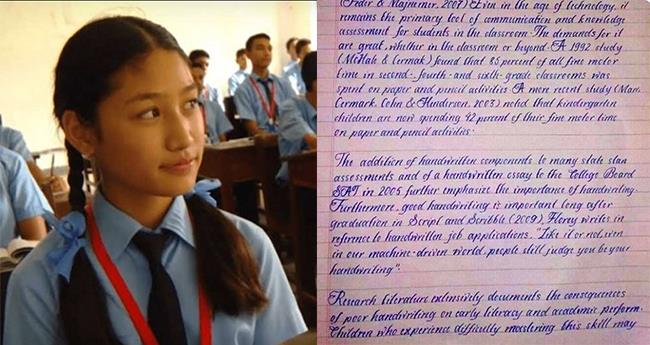 (Feder & Majnemer, 2007) Even in the age of technology, it
remains the primary tool of communication and knowledge
assessment for students in the classroom. The demands for it
are great, whether in the classroom or beyond. A 1992 study
(McHale & Cermak) found that 85 percent of all fine motor
time in second- fourth- and sixth-grade classrooms was
spent on paper and pencil activities. A more recent study (Marr,
Cermark, Cohn & Henderson, 2003) noted that kindergarten
children are now spending 42 percent of their fine motor time
on paper and pencil activities.
The addition of handwritten components to many state
assessments and of a handwritten essay to the College Board
SAT in 2005 further emphasize the importance of handwriting.
Furthermore, good handwriting is important long after
graduation in Script and Scribble (2009), Florey writes in
reference to handwritten job applications, "Like it or not, even
in our machine-driven world, people still judge you be your
handwriting".
Research literature extensively documents the consequences
of poor handwriting on early literacy and academic perform-
Children who experience difficulty mastering this skill may